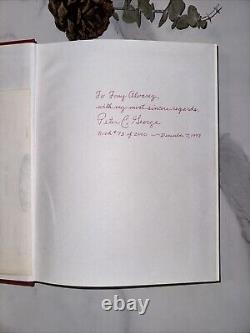 To Tony Alvarez,
with my most sincere regards,
Peter C. George
Book #73 of 2000 — December 7, 1998
ebay